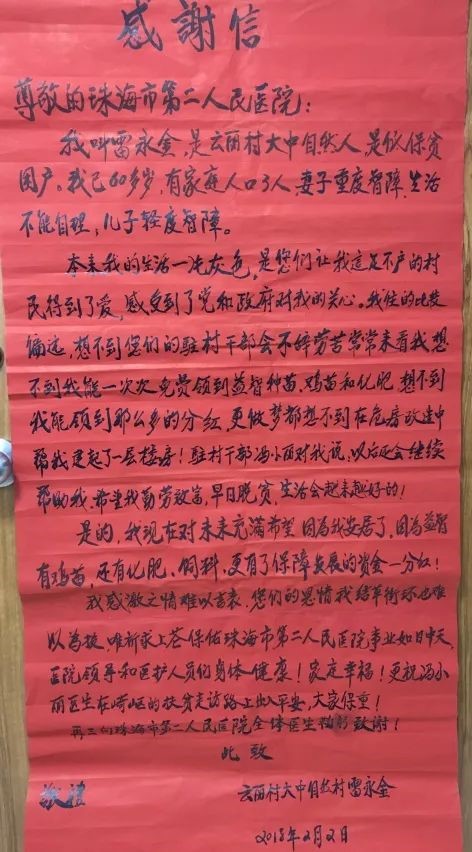 感謝信
尊敬的珠海市第二人民医院:
我叫雷永金,是云丽村大中自然人,是低保贫
困户。我已60多岁,有家庭人口3人,妻子重度智障,生活
不能自理,儿子轻度智障。
本来我的生活一片灰色,是您们让我这足不户的村
民得到了爱,感受到了党和政府对我的关心。我住的比较
偏远,想不到您们的驻村干部会不辞劳苦常常来看我,想
不到我能一次次免费领到益智种苗、鸡苗和化肥,想不到
我能领到那么多的分红,更做梦都想不到在危房改造中
帮我建起了一层楼房!驻村干部冯小丽对我说,以后还会继续
帮助我,希望我勤劳致富,早日脱贫,生活会越来越好的!
是的,我现在对未来充满希望,因为我安居了,因为益智
有鸡苗,还有化肥、饲料,更有了保障发展的资金一分红!
我感激之情难以言表,您们的恩情我结草衔环也难
以为报,唯祈求上苍保佑珠海市第二人民医院事业如日中天,
医院领导和医护人员们身体健康!家庭幸福!更祝冯小
丽医生在崎岖的扶贫走访路上出入平安,大家保重!
再三向珠海市第二人民医院全体医生 致谢!
此致
敬禮
云丽村大中自然村雷永金
2018年2月2日